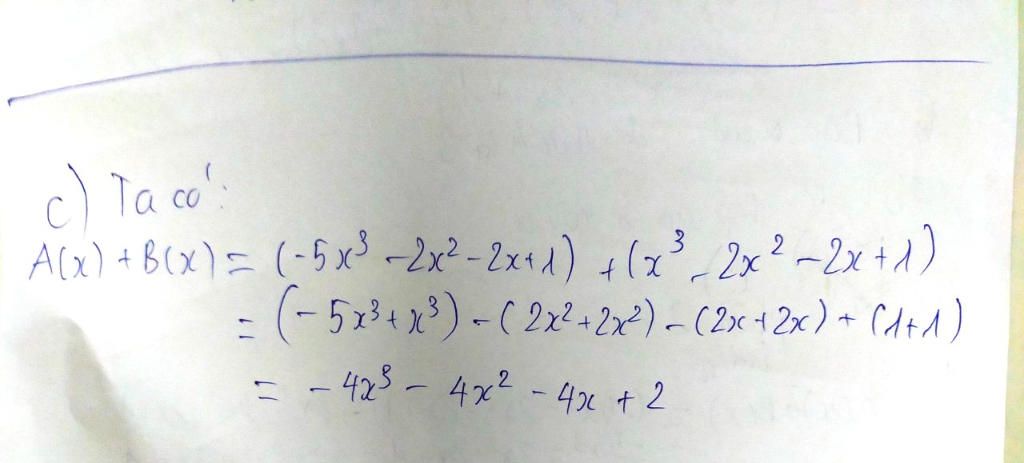 c) Ta có:
A(x) + B(x) = (-5x³ - 2x² - 2x + 1) + (x³ - 2x² - 2x + 1)
= (-5x³ + x³) - (2x² + 2x²) - (2x + 2x) + (1 + 1)
= -4x³ - 4x² - 4x + 2